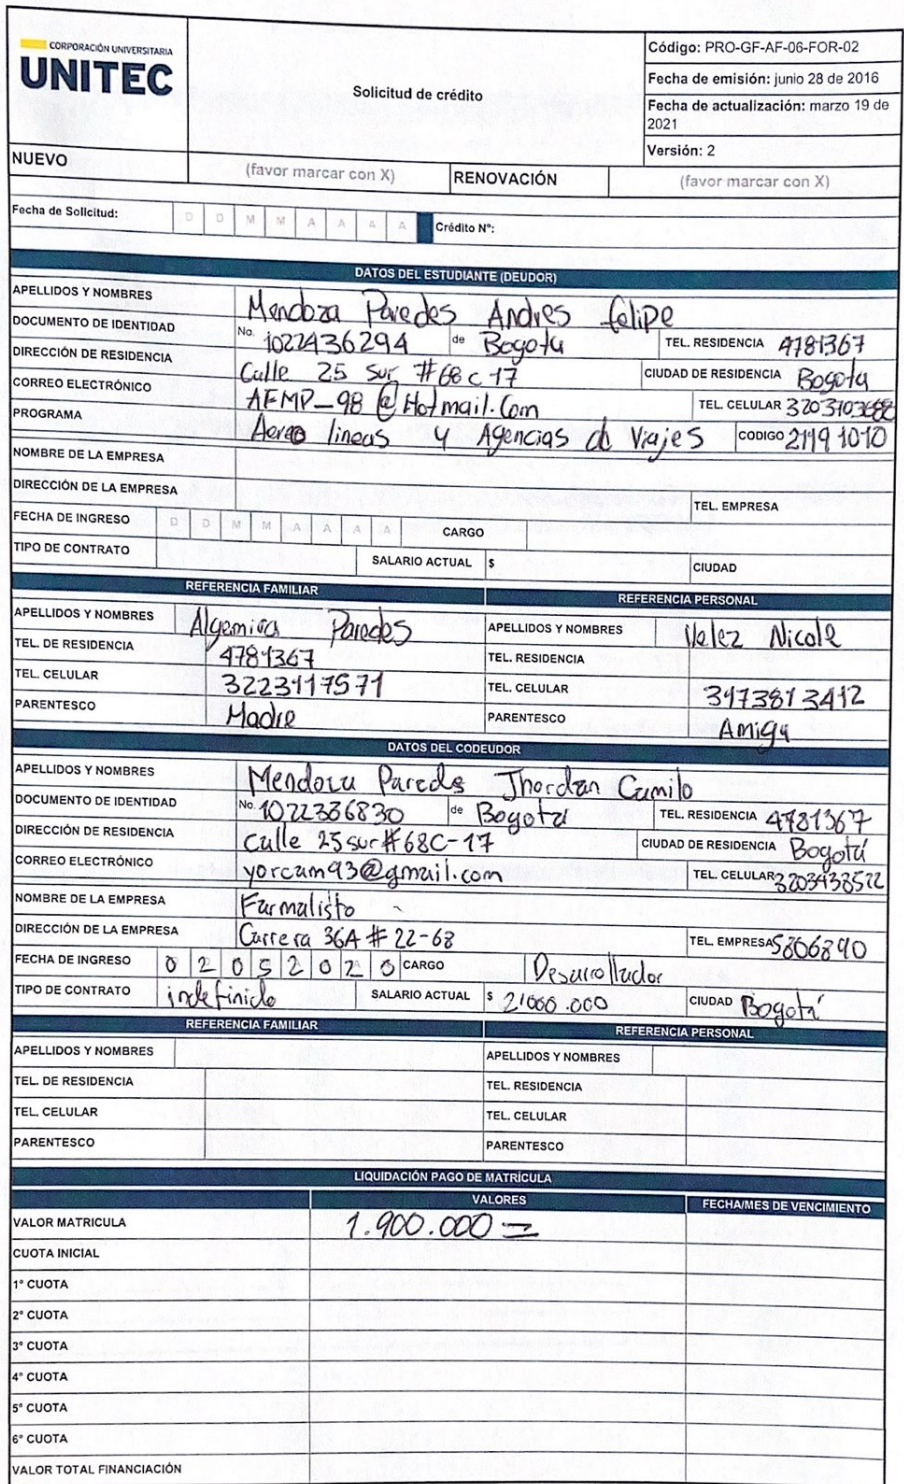 CORPORACIÓN UNIVERSITARIA
UNITEC
Solicitud de crédito
Código: PRO-GF-AF-06-FOR-02
Fecha de emisión: junio 28 de 2016
Fecha de actualización: marzo 19 de
2021
Versión: 2
NUEVO (favor marcar con X) RENOVACIÓN (favor marcar con X)
Fecha de Solicitud: D D M M A A A A Crédito N°:
DATOS DEL ESTUDIANTE (DEUDOR)
APELLIDOS Y NOMBRES Mendoza Paredes Andres felipe
DOCUMENTO DE IDENTIDAD No. 1022436294 de Bogota TEL. RESIDENCIA 4781367
DIRECCIÓN DE RESIDENCIA Calle 25 sur #68c-17 CIUDAD DE RESIDENCIA Bogota
CORREO ELECTRÓNICO AFMP_98@Hotmail.Com TEL. CELULAR 3203103688
PROGRAMA lineas y Agencias de Viajes CODIGO 21191010
NOMBRE DE LA EMPRESA
DIRECCIÓN DE LA EMPRESA TEL. EMPRESA
FECHA DE INGRESO D D M M A A A A CARGO
TIPO DE CONTRATO SALARIO ACTUAL $ CIUDAD
REFERENCIA FAMILIAR REFERENCIA PERSONAL
APELLIDOS Y NOMBRES Algemira Paredes APELLIDOS Y NOMBRES Velez Nicole
TEL. DE RESIDENCIA 4781367 TEL. RESIDENCIA
TEL. CELULAR 3223117571 TEL. CELULAR 3173813412
PARENTESCO Madre PARENTESCO Amiga
DATOS DEL CODEUDOR
APELLIDOS Y NOMBRES Mendoza Paredes Jhordan Camilo
DOCUMENTO DE IDENTIDAD No. 1022386830 de Bogotá TEL. RESIDENCIA 4781367
DIRECCIÓN DE RESIDENCIA Calle 25 sur #68C-17 CIUDAD DE RESIDENCIA Bogotá
CORREO ELECTRÓNICO yorcam93@gmail.com TEL. CELULAR 3203433522
NOMBRE DE LA EMPRESA Farmalisto
DIRECCIÓN DE LA EMPRESA Carrera 36A # 22-68 TEL. EMPRESA 5806890
FECHA DE INGRESO 0 2 0 5 2 0 2 0 CARGO Desarrollador
TIPO DE CONTRATO indefinido SALARIO ACTUAL $ 2'000.000 CIUDAD Bogotá
REFERENCIA FAMILIAR REFERENCIA PERSONAL
APELLIDOS Y NOMBRES APELLIDOS Y NOMBRES
TEL. DE RESIDENCIA TEL. RESIDENCIA
TEL. CELULAR TEL. CELULAR
PARENTESCO PARENTESCO
LIQUIDACIÓN PAGO DE MATRÍCULA
VALORES FECHA/MES DE VENCIMIENTO
VALOR MATRICULA 1.900.000=
CUOTA INICIAL
1° CUOTA
2° CUOTA
3° CUOTA
4° CUOTA
5° CUOTA
6° CUOTA
VALOR TOTAL FINANCIACIÓN